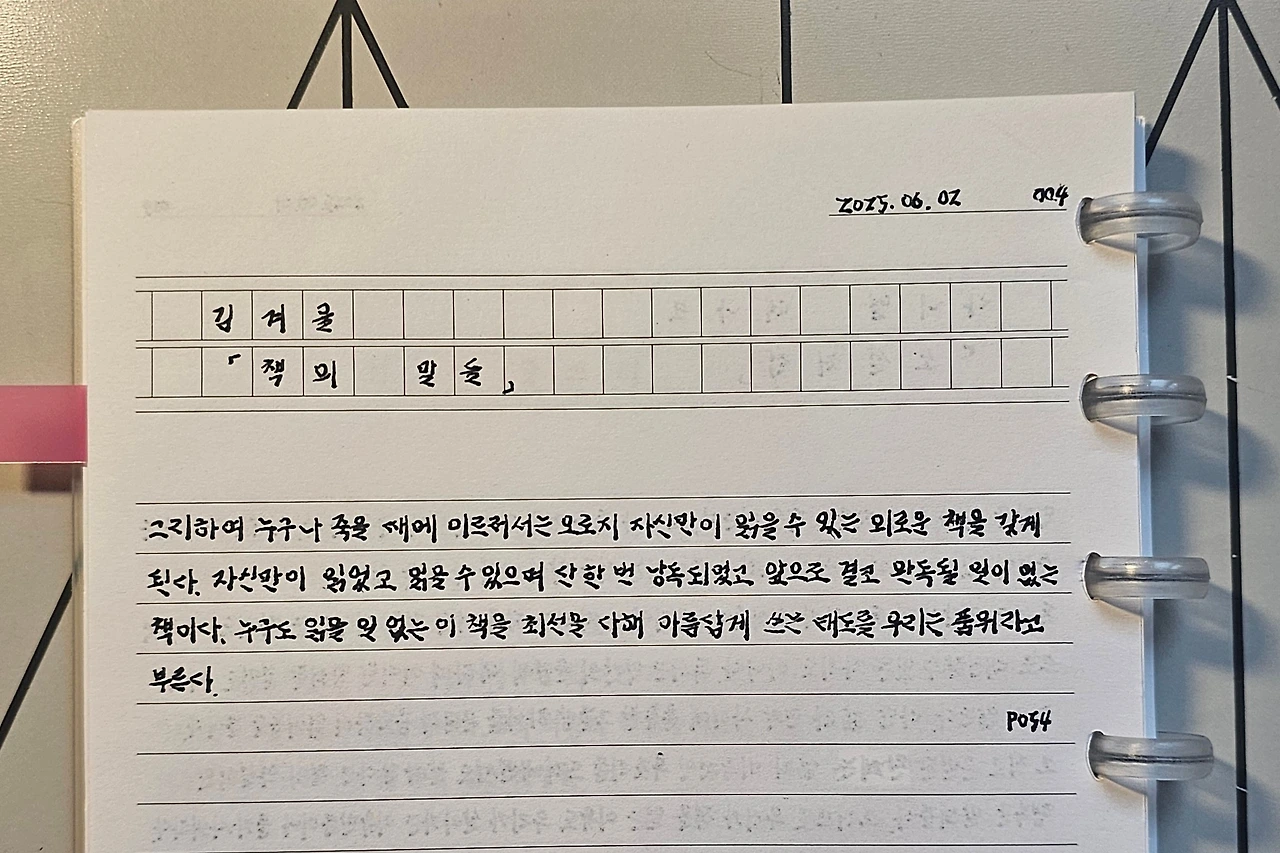 2025.06.02 004
김겨울
「책의 말들」
그리하여 누구나 죽을 때에 이르러서는 오로지 자신만이 읽을 수 있는 외로운 책을 갖게
된다. 자신만이 읽었고 읽을 수 있으며 단 한 번 낭독되었고 앞으로 결코 완독될 일이 없는
책이다. 누구도 읽을 일 없는 이 책을 최선을 다해 아름답게 쓰는 태도를 우리는 품위라고
부른다.
P054